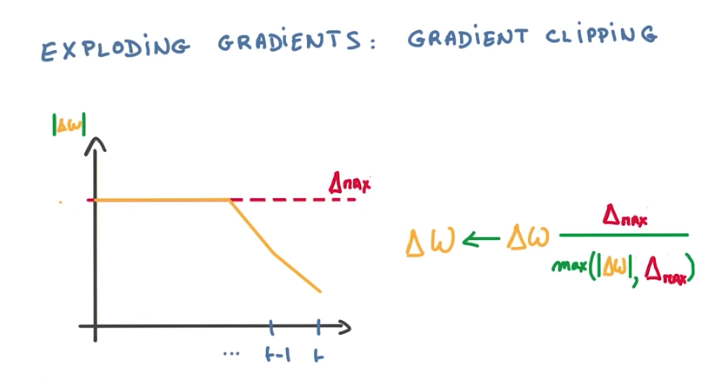 EXPLODING GRADIENTS: GRADIENT CLIPPING
|Δw|
Δmax
ΔW ← ΔW Δmax
max(|ΔW|, Δmax)
... t-1 t